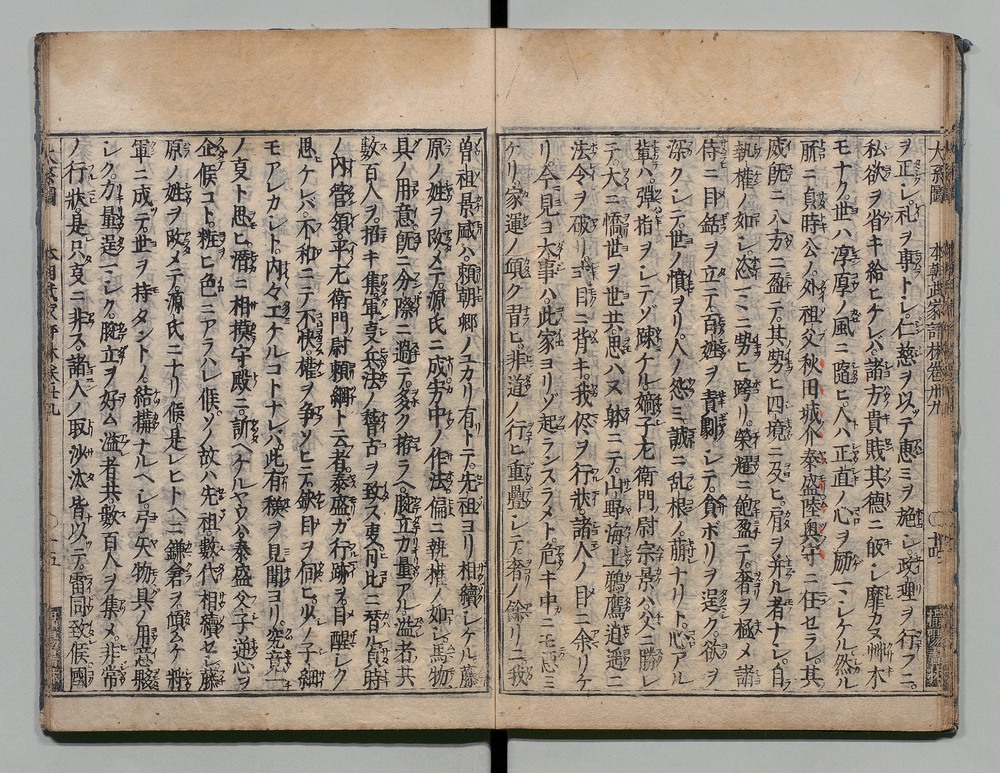 大系圖　本朝武家評林卷卅九　十四
ヲ正シ礼ヲ專トシ仁慈ヲ以テ惠ミヲ施シ政理ヲ行フニ
私欲ヲ省キ給ヒケレバ諸方貴賤其德ニ皈シ靡カヌ艸木
モナク世ハ淳厚ノ風ニ隨ヒ人ハ正直ノ心ヲ励マシケル然ル
所ニ貞時公ノ外祖父秋田城介泰盛陸奥守ニ任セラレ其
威既ニ八方ニ盈テ其勢ヒ四境ニ及ヒ肩ヲ并ル者ナシ自
執權ノ如シ恣マヽニ勢ヒニ跨リ榮耀ニ飽盈テ奢ヲ極メ諸
侍ニ目話ヲ立テ百姓ヲ責劇シテ貪ボリヲ逞ク欲ヲ
深クシテ世ノ憤ヲリ人ノ怨ミ誠ニ乱根ノ萠ナリト心アル
輩ハ彈指ヲシテゾ疎ケル嫡子左衛門尉宗景ハ父ニ勝レ
テ大ニ憍世ヲ世共思ハヌ躰ニテ山野海上鵜鷹逍遥ニ
法令ヲ破リ目ニ背キ我侭ヲ行狀諸人ノ目ニ余リケ
リ今見ヨ大事ハ此家ヨリゾ起ランスラメト危キ中ニモ忌ミ
ケリ家運ノ傾ク昔ヒ非道ノ行ヒ重疊シテ奢ノ餘リニ我
曽祖景盛ハ賴朝卿ノユカリ有トテ先祖ヨリ相續シケル藤
原ノ姓ヲ改メテ源氏ニ成家中ノ作法偏ニ執權ノ如シ馬物
具ノ用意既ニ分際ニ過テ多ク拵ラヘ腕立力量アル溢者共
數百人ヲ招キ集軍㕝兵法ノ稽古ヲ致ス㕝月比ニ替ル貞時
ノ内管領平左衛門尉賴綱ト云者泰盛ガ行跡ヲ目醒シク
思ヒケレバ不和ニテ不快權ヲ爭ソヒテ缺目ヲ伺ヒ少ノ子細
モアレカシト内々エケルコトナレバ此有樣ヲ見聞ヨリ究竟ノ
ノ㕝ト思ヒ潜ニ相模守殿ニ訴ヘケルヤウハ泰盛父子逆心ヲ
企候コト粧ヒ色ニアラハレ候ソノ故ハ先祖數代相續セシ藤
原ノ姓ヲ改メテ源氏ニナリ候是レヒトヘニ鎌倉ヲ傾ムケ將
軍ニ成テ世ヲ持タントノ結搆ナルヘシ弓矢物具ノ用意夥
シク力量逞マシク腕立ヲ好ム溢者共數百人ヲ集メ非常
ノ行狀是只㕝ニ非ス諸人ノ取沙汰皆以テ雷同致候國
大系圖　本朝武家評林卷卅九　十五